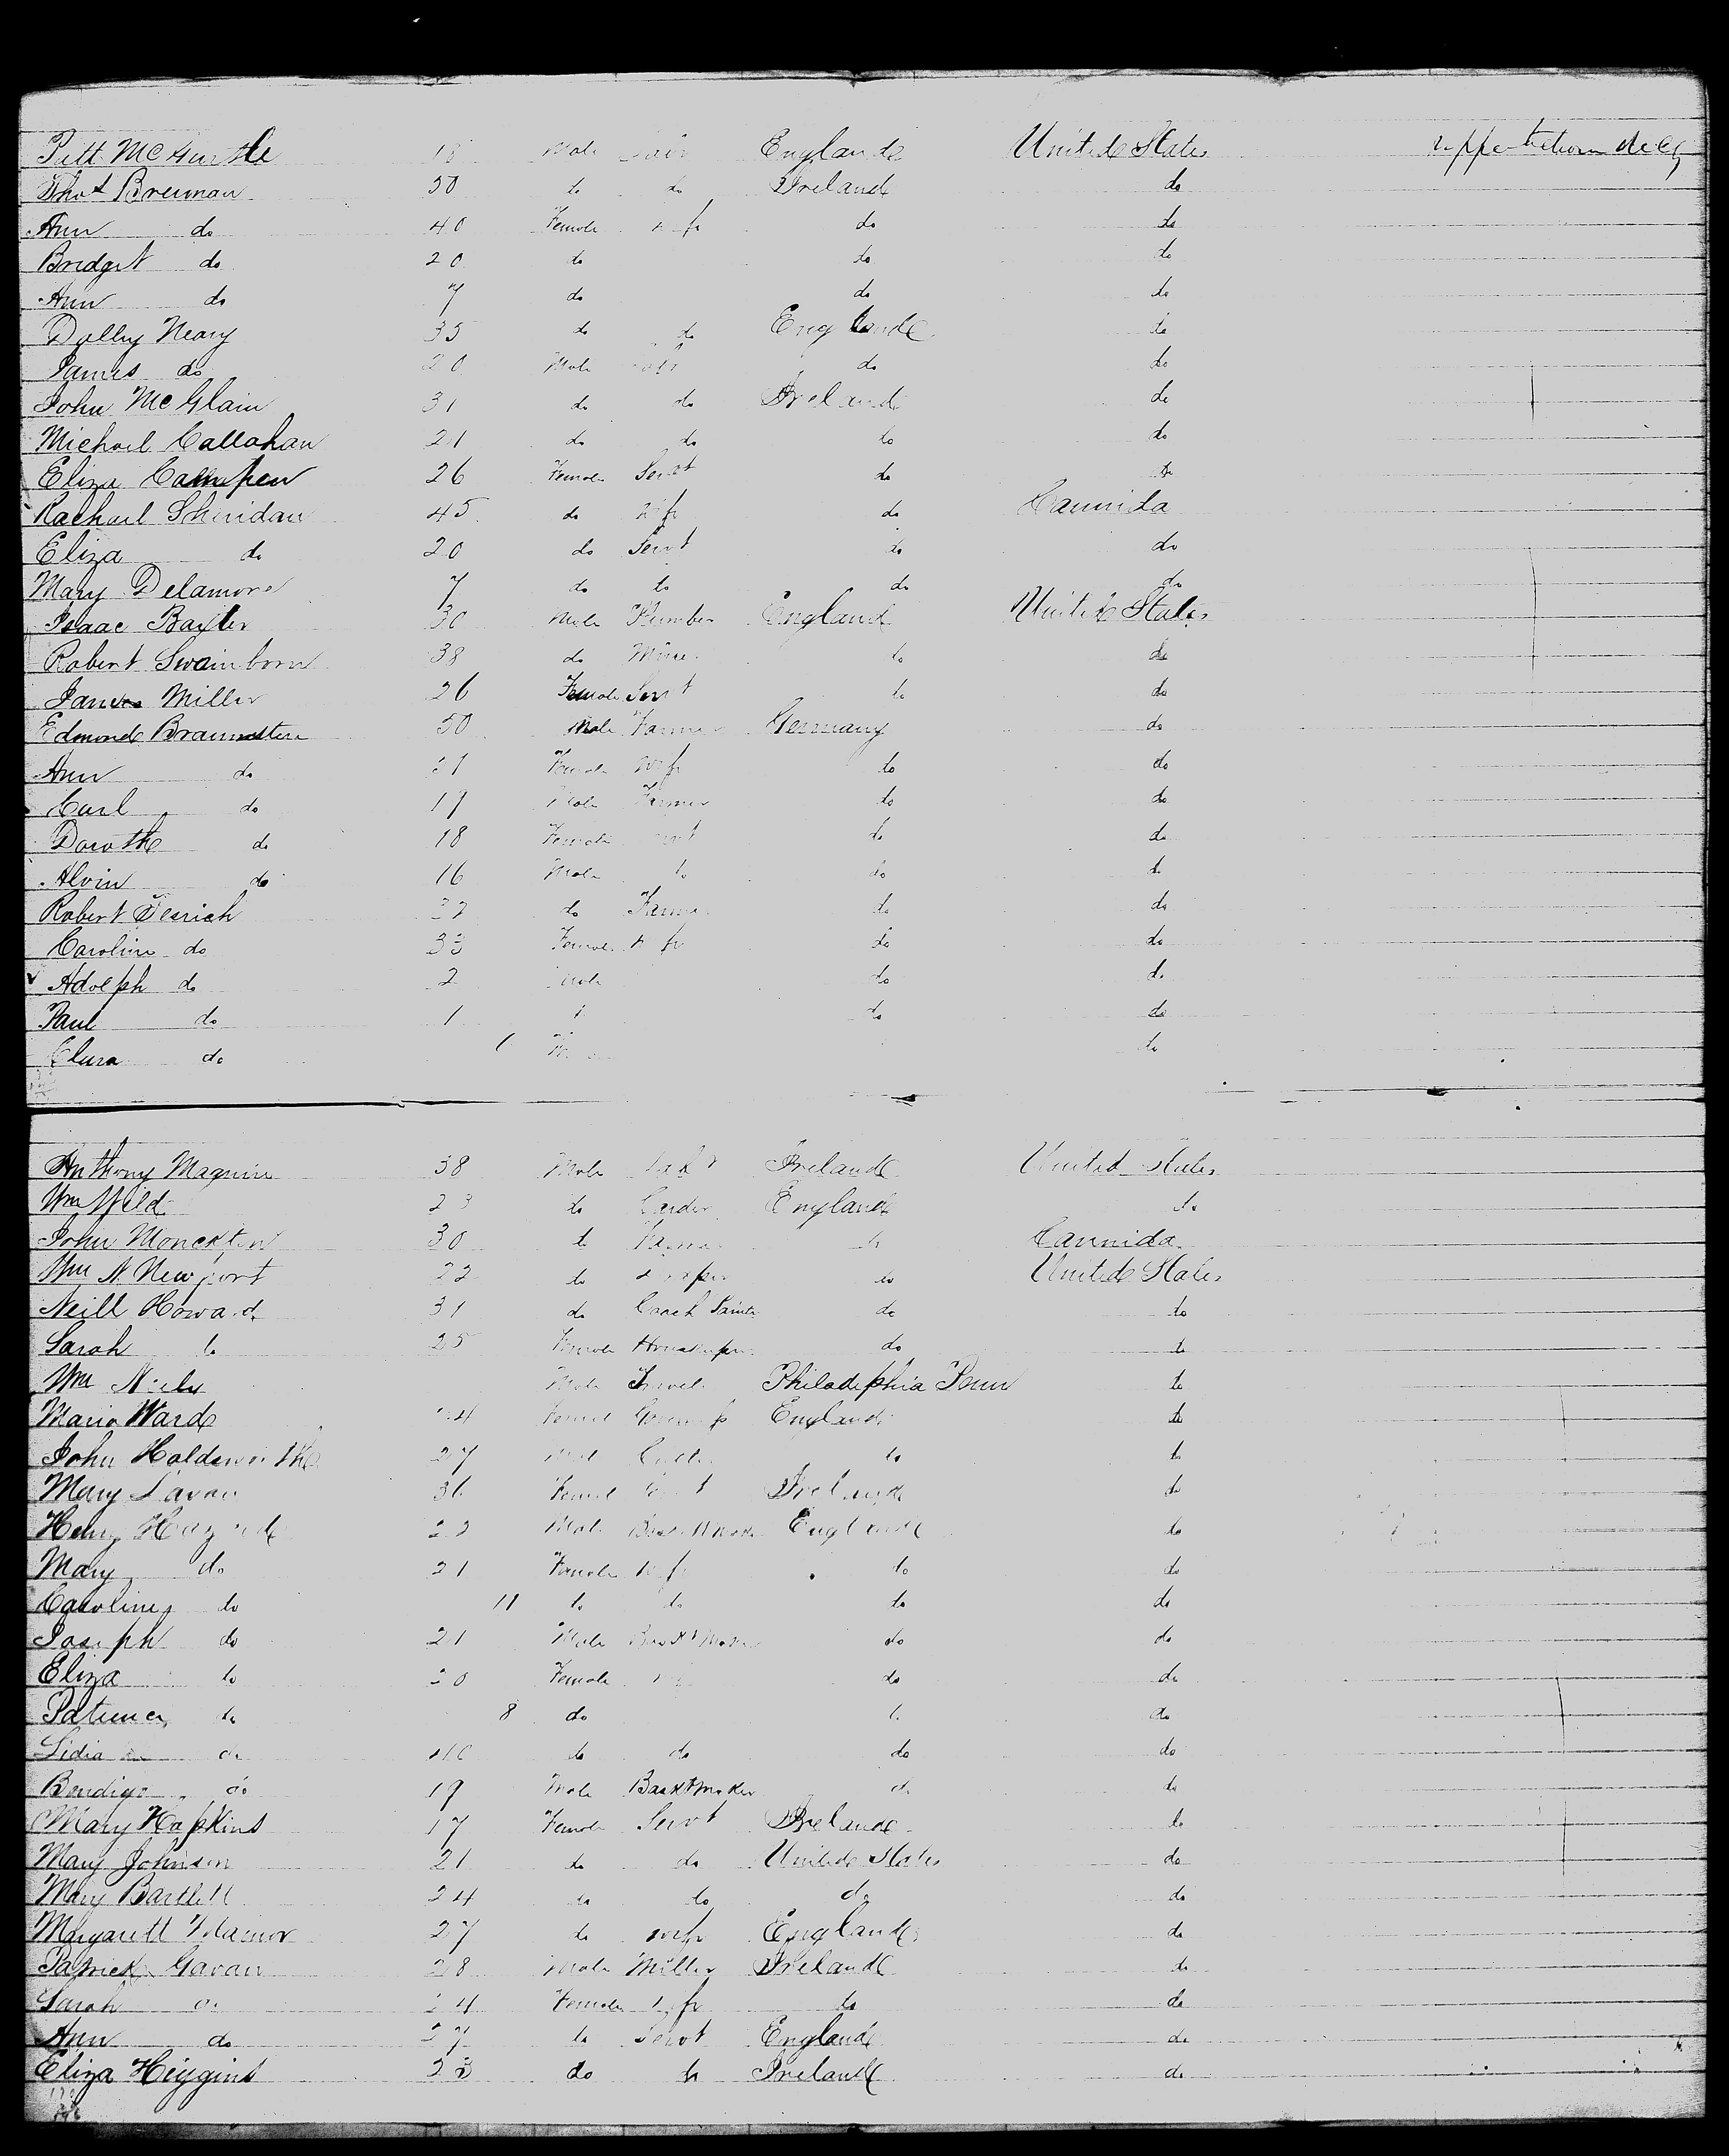 Patt McGurtle 18 Male England United States
Thos Brennan 50 do do Ireland do
Ann do 40 Female wife do do
Bridget do 20 do do do
Ann do 7 do do do
Dolly Neary 35 do do England do
James do 20 Male do do
John McGlain 31 do do Ireland do
Michael Callahan 21 do do do do
Eliza 26 Female Servt do do
Rachael Sheridan 45 do wife do Cannida
Eliza do 20 do Servt do do
Mary Delamore 7 do do do do
Isaac Baxter 30 Male Plumber England United States
Robert Swainborn 38 do Miner do do
Miller 26 Female Servt do do
Edmond 50 Male Farmer Germany do
Ann do 21 Female wife do do
Carl do 19 Male Farmer do do
Dorothe do 18 Female Servt do do
Alvin do 16 Male do do do
Robert do Farmer do do
Caroline do 33 Female wife do do
Adolph do 2 Male do do
Paul do 1 do do do
Clara do 1 do
Anthony Maguire 38 Male Labr Ireland United States
Wm Wild 23 do Carder England do
John Monckton 30 do Farmer do Cannida
Wm N. Newport 22 do Draper do United States
Neill Howard 31 do Coach Painter do do
Sarah do 25 Female Housekeeper do do
Wm Male Philadelphia Penn do
Maria Ward Female England do
John Holdsworth 27 Male do do
Mary Lavan 36 Female Servt Ireland do
Henry 22 Male England do
Mary do 21 Female wife do do
Caroline do 11 do do do do
Joseph do 21 Male Baskt Maker do do
Eliza do 20 Female do do
do 8 do do do
Lidia do 10 do do do do
Bendigo do 19 Male Basktmaker do do
Mary Hopkins 17 Female Servt Ireland do
Mary Johnson 21 do do United States do
Mary Bartlett 24 do do do do
Margarett 27 do wife England do
Patrick Gavan 28 Male Miller Ireland do
Sarah do 24 Female wife do do
Ann do 27 do Servt England do
Eliza Higgins 23 do do Ireland do